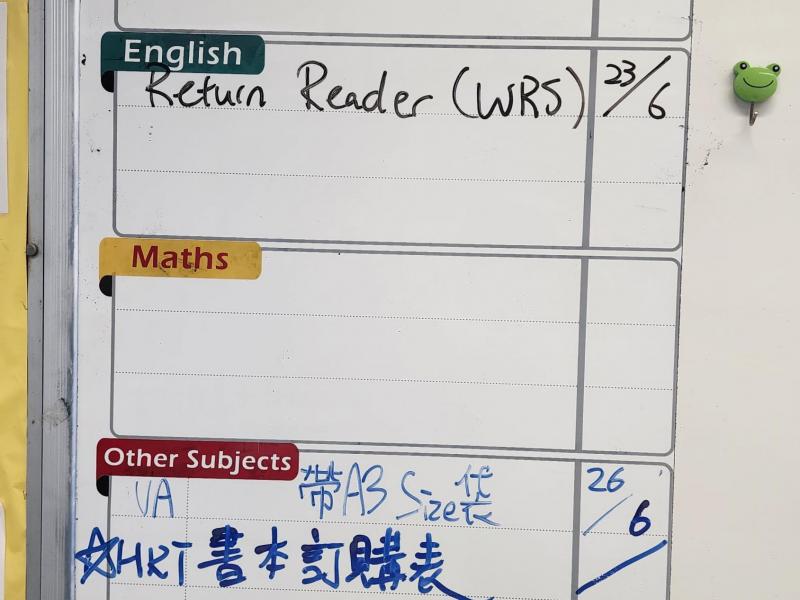 English
Return Reader (WRS) 23/6
Maths
Other Subjects
VA 帶A3 Size袋 26/6
☆HRT 書本訂購表